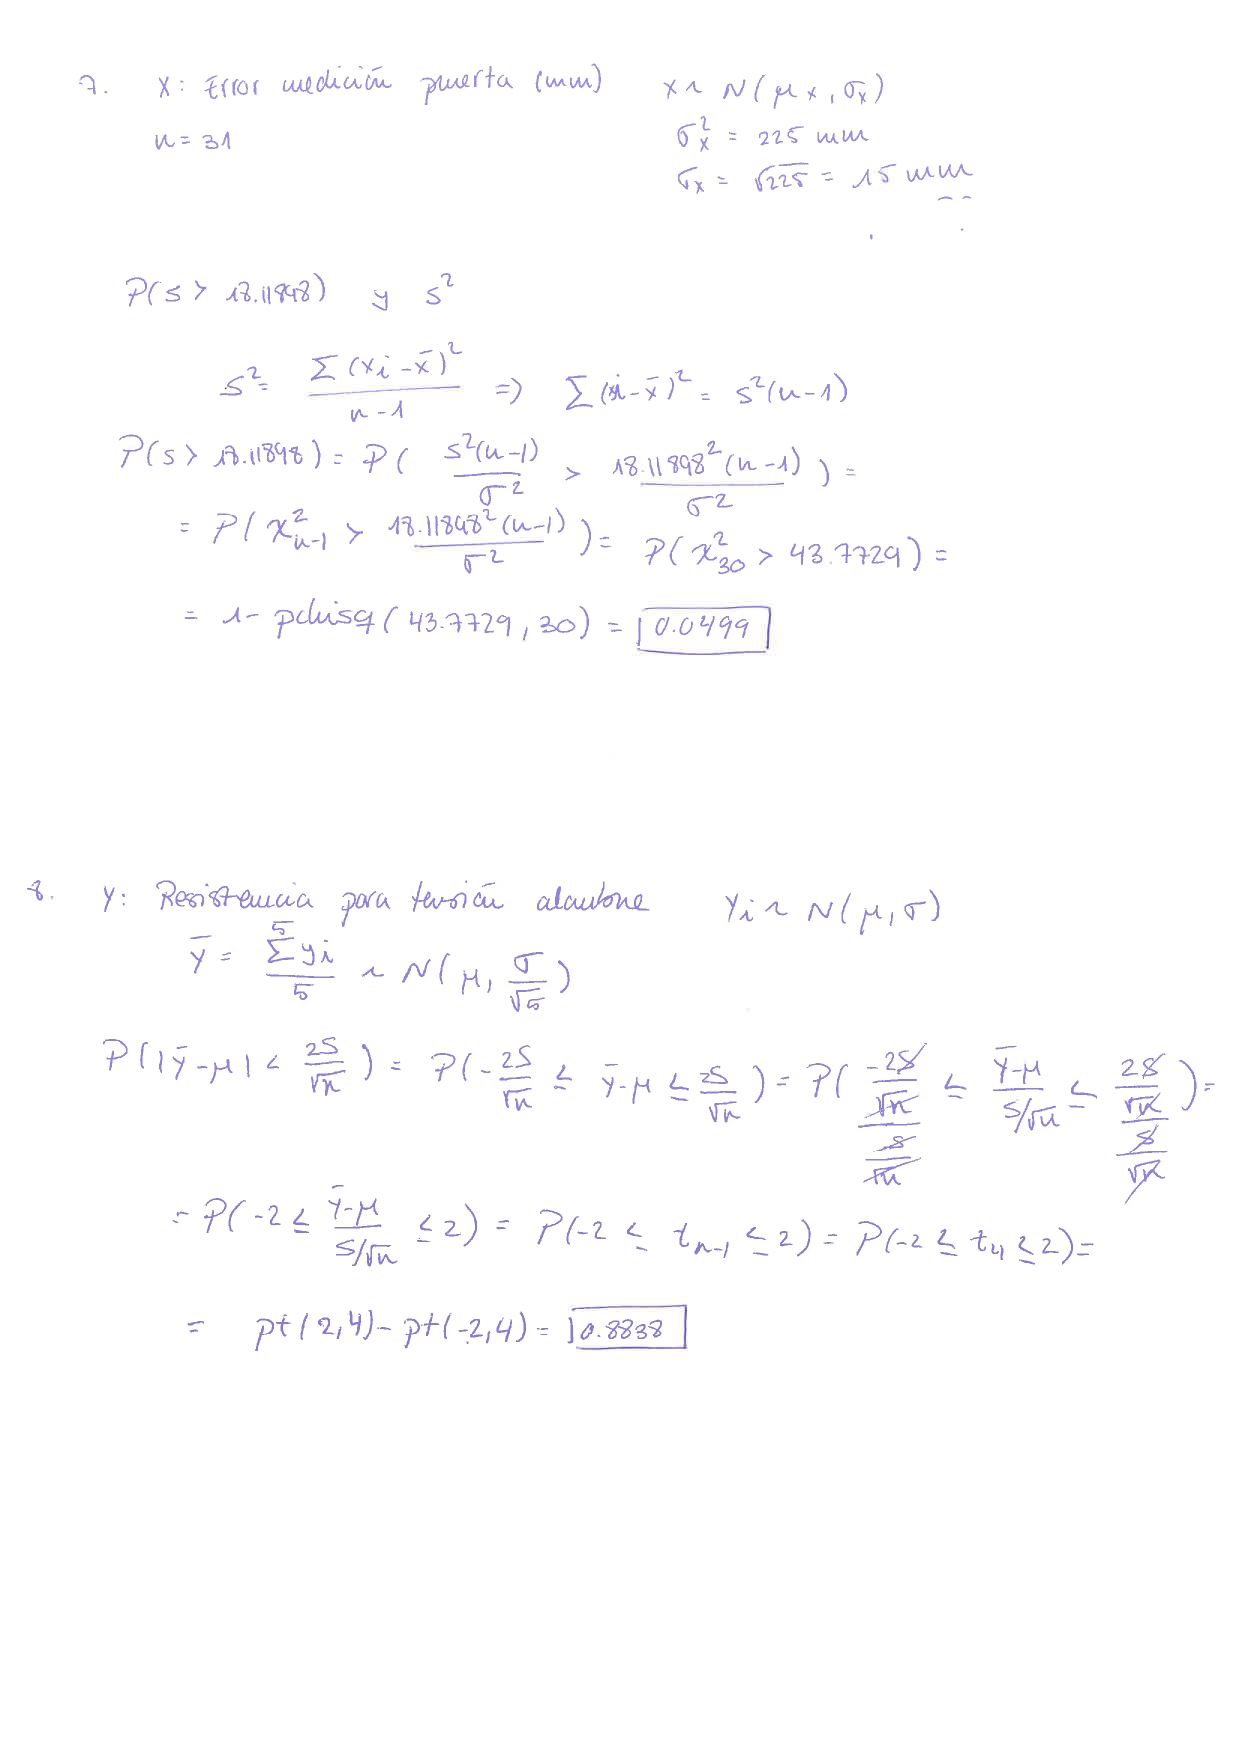 7. X: Error medición puerta (mm) X ~ N(μx, σx)
n = 31 σ²x = 225 mm
σx = √225 = 15 mm
P(s > 18.11898) y s²
s² = Σ(xi - x̄)² / n-1 => Σ(xi - x̄)² = s²(n-1)
P(s > 18.11898) = P( s²(n-1) / σ² > 18.11898²(n-1) / σ² ) =
= P( χ²n-1 > 18.11898²(n-1) / σ² ) = P( χ²30 > 43.7729 ) =
= 1 - pchisq(43.7729, 30) = 0.0499
8. Y: Resistencia para tensión alambre Yi ~ N(μ, σ)
Ȳ = Σ⁵ yi / 5 ~ N(μ, σ/√5)
P(|Ȳ-μ| < 2S/√n) = P(-2S/√n ≤ Ȳ-μ ≤ 2S/√n) = P( (-2S/√n) / (S/√n) ≤ Ȳ-μ / S/√n ≤ (2S/√n) / (S/√n) ) =
= P(-2 ≤ Ȳ-μ / S/√n ≤ 2) = P(-2 ≤ tn-1 ≤ 2) = P(-2 ≤ t4 ≤ 2) =
= pt(2,4) - pt(-2,4) = 0.8838